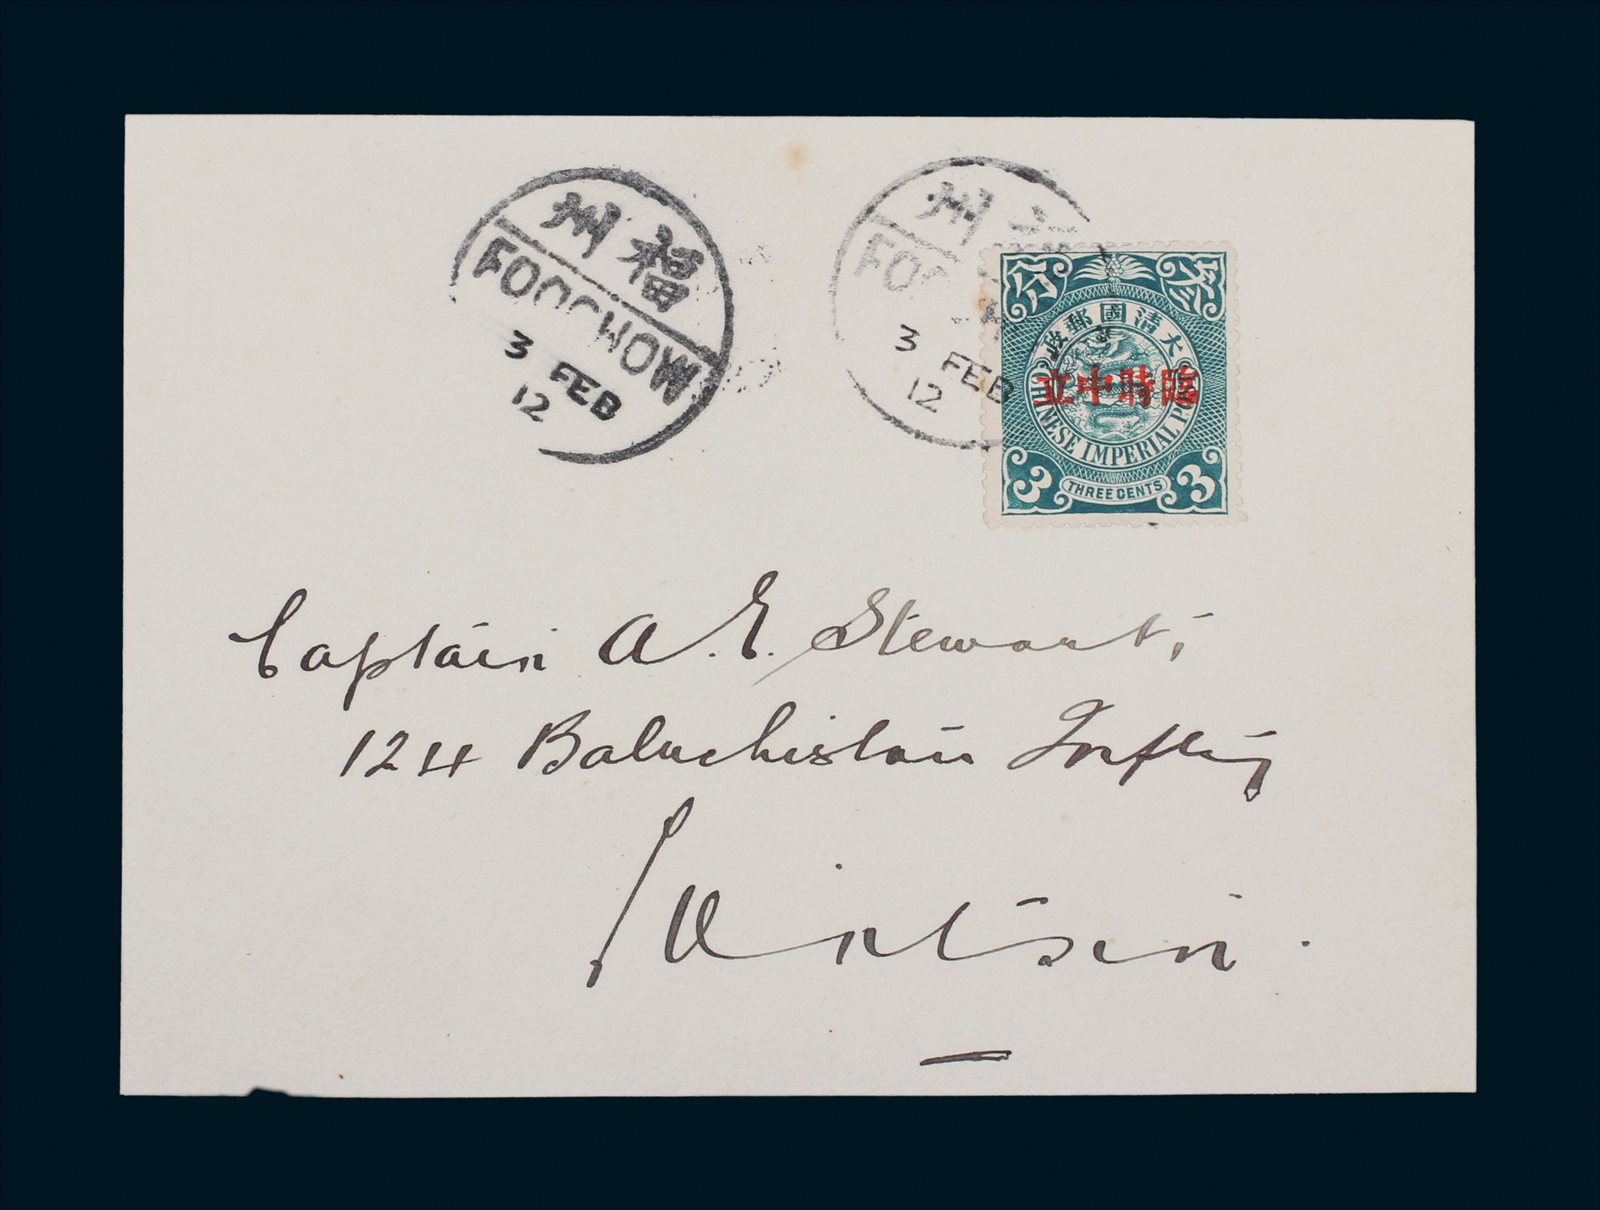 州福
FOOCHOW
3 FEB
12
州福
FOO
3 FEB
12
分 叁
政郵國清大
臨時中立
CHINESE IMPERIAL POST
3 THREE CENTS 3
Captain A. E. Stewart,
124 Baluchistan Inftry
Tientsin.